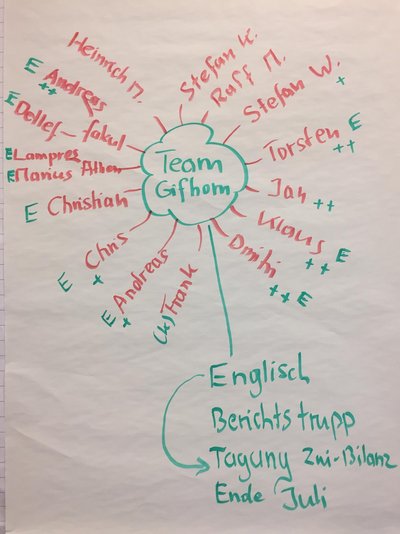 Heinrich M.
Stefan K.
Ralf M.
Stefan W.
+
E Andreas
++
E Detlef - fakul
Torsten E
++
E Lampres
E Marius
Team
Gifhorn
Jan ++
E Christian
Klaus
++ E
Chris
E +
Dmitri
++ E
Andreas
E +
Frank
Englisch
Berichtstrupp
Tagung Zwi-Bilanz
Ende Juli